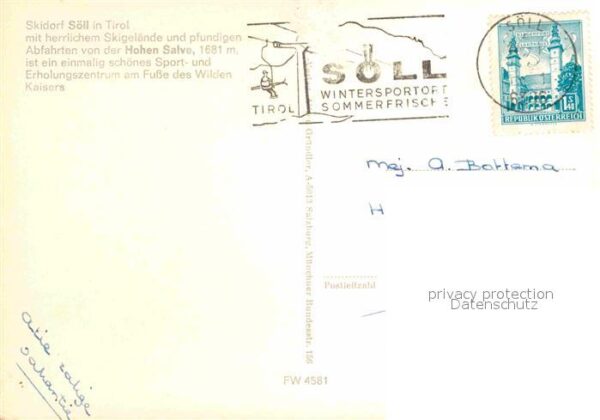 Skidorf Söll in Tirol
mit herrlichem Skigelände und pfundigen
Abfahrten von der Hohen Salve, 1681 m,
ist ein einmalig schönes Sport- und
Erholungszentrum am Fuße des Wilden
Kaisers
SÖLL
WINTERSPORTORT
TIROL SOMMERFRISCHE
SÖLL
1.40
REPUBLIK ÖSTERREICH
Mej. A. Bottema
H
Gründler, A-5013 Salzburg, Münchner Bundesstr. 156
Postleitzahl
privacy protection
Datenschutz
FW 4581